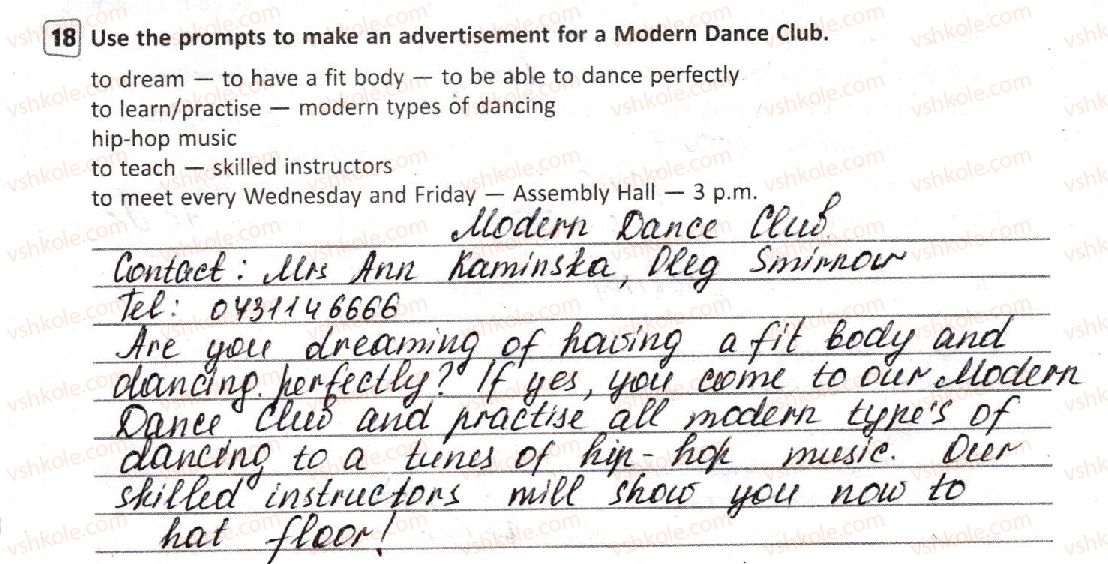 18 Use the prompts to make an advertisement for a Modern Dance Club.
to dream — to have a fit body — to be able to dance perfectly
to learn/practise — modern types of dancing
hip-hop music
to teach — skilled instructors
to meet every Wednesday and Friday — Assembly Hall — 3 p.m.
Modern Dance Club
Contact: Mrs Ann Kaminska, Oleg Smirnow
Tel: 0431146666
Are you dreaming of having a fit body and
dancing perfectly? If yes, you come to our Modern
Dance Club and practise all modern type's of
dancing to a tunes of hip-hop music. Our
skilled instructors will show you now to
hat floor!
vshkole.com